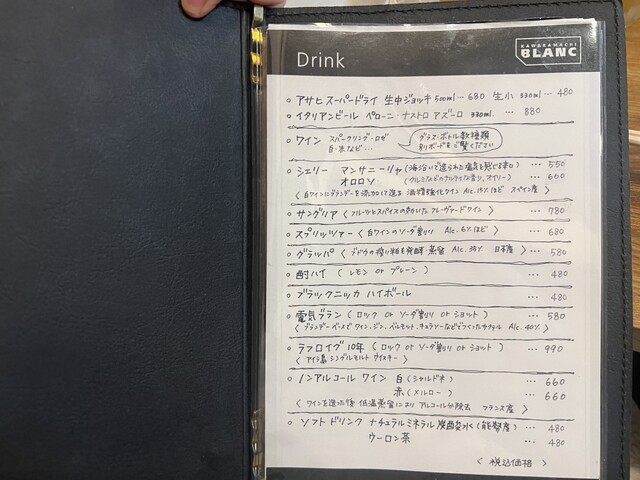 Drink
KAWARAMACHI
BLANC
○ アサヒスーパードライ 生中ジョッキ 500ml … 680 生小 330ml … 480
○ イタリアンビール ペローニ・ナストロ アズーロ 330ml. … 880
○ ワイン スパークリング・ロゼ
白・赤など…
グラス・ボトル数種類
別ボードをご覧ください
○ シェリー マンサニーリャ (海沿いで造られた塩気を感じる辛口) … 550
オロロソ (クルミなどのナッツティな香り、オイリー) … 600
〈 白ワインにブランデーを添加して造る 酒精強化ワイン Alc.15%ほど スペイン産 〉
○ サングリア (フルーツとスパイスの効いたフレーヴァードワイン) … 780
○ スプリッツァー (白ワインのソーダ割り Alc.6%ほど) … 680
○ グラッパ (ブドウの搾り粕を発酵・蒸留 Alc.35% 日本産) … 580
○ 酎ハイ ( レモン or プレーン ) … 480
○ ブラックニッカ ハイボール … 480
○ 電気ブラン ( ロック or ソーダ割り or ショット ) … 580
〈 ブランデーベースでワイン、ジン、ベルモット、キュラソーなどをつかったカクテル Alc.40% 〉
○ ラフロイグ 10年 ( ロック or ソーダ割り or ショット ) … 990
〈 アイラ島 シングルモルト ウイスキー 〉
○ ノンアルコール ワイン 白 (シャルドネ) … 660
赤 (メルロー) … 660
〈 ワインを造った後 低温蒸留により アルコール分除去 フランス産 〉
○ ソフトドリンク ナチュラルミネラル炭酸水 (能勢産) … 480
ウーロン茶 … 480
〈 税込価格 〉